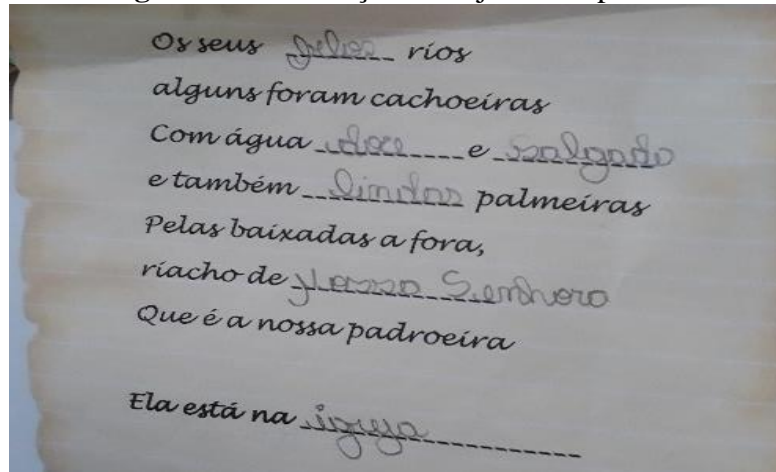 Os seus rios
alguns foram cachoeiras
Com água doce e salgada
e também lindas palmeiras
Pelas baixadas a fora,
riacho de Nossa Senhora
Que é a nossa padroeira
Ela está na igreja